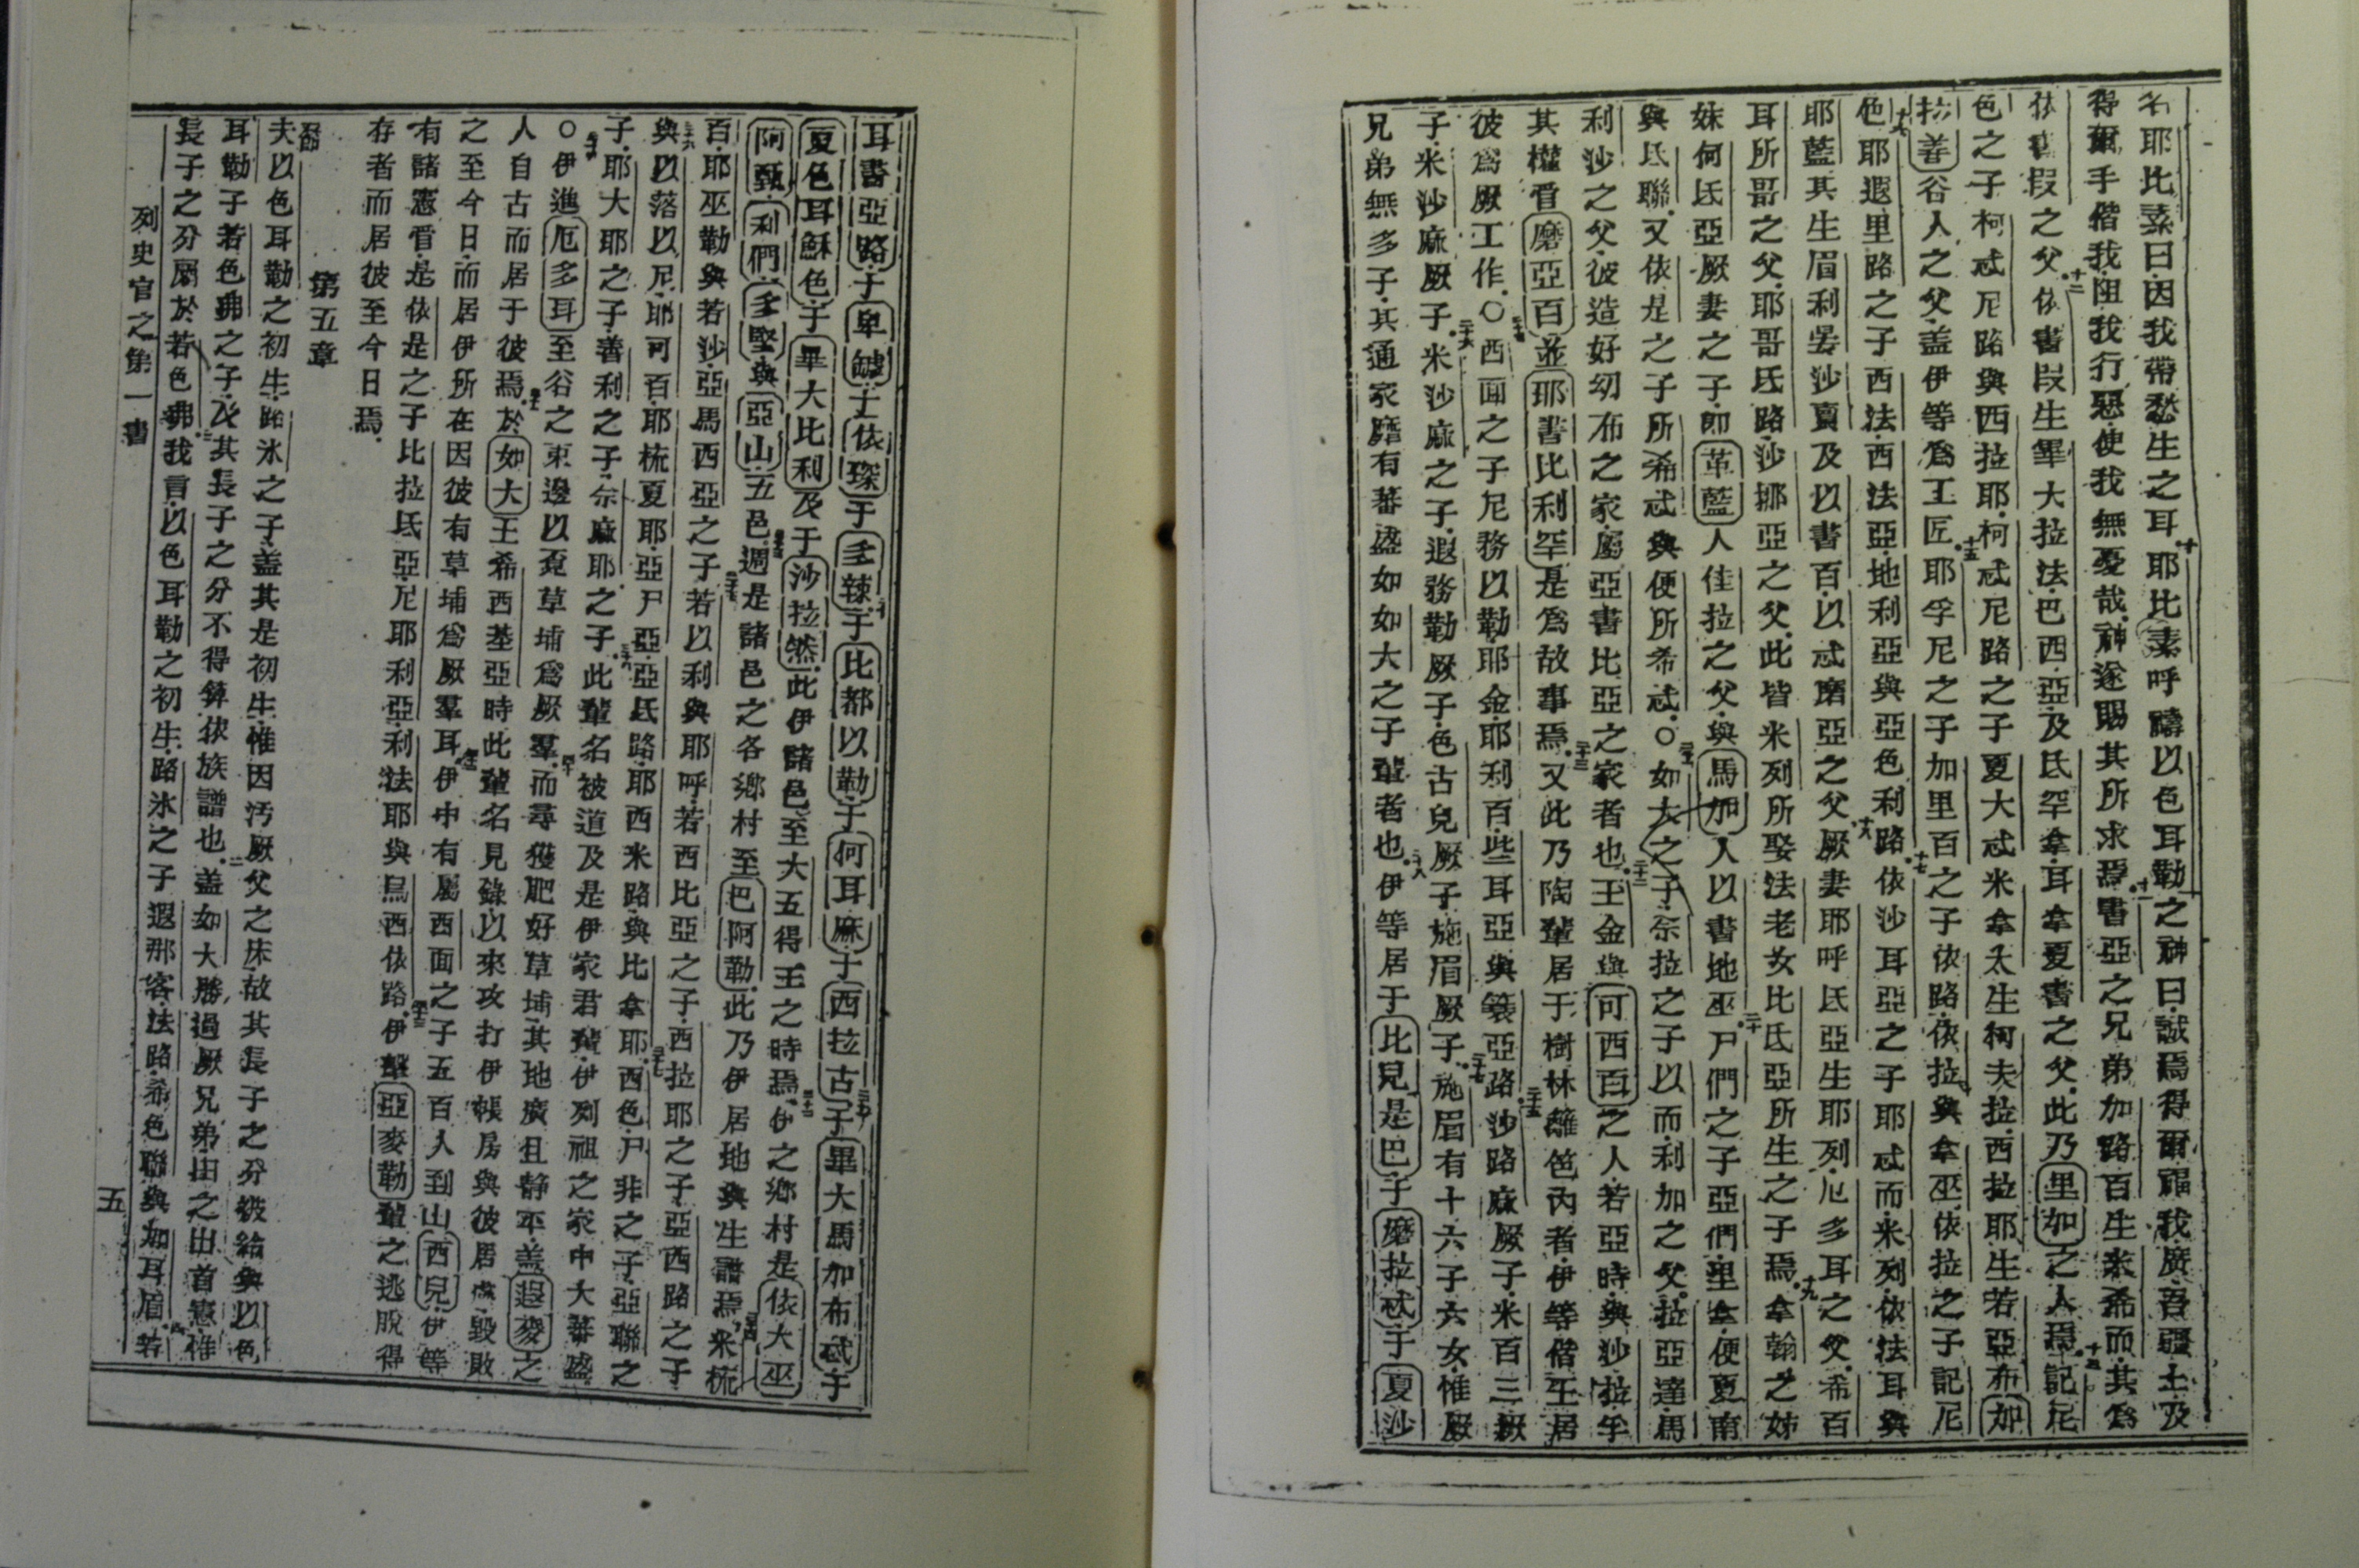 名耶比素曰因我帶愁生之耳十耶比素呼禱以色耳勒之神曰誠焉得爾福我廣吾疆土及
得爾手偕我阻我行惡使我無憂哉神遂賜其所求焉十一書亞之兄弟加路百生米希而其為
依書叚之父十二依書叚生畢大拉法巴西亞及氐罕拿耳拿夏書之父此乃里如之人焉十三記尼
色之子柯忒尼路與西拉耶柯忒尼路之子夏大忒米拿太生柯夫拉西拉耶生若亞布如
拉善谷人之父盖伊等為工匠十五耶孚尼之子加里百之子依路依拉與拿巫依拉之子記尼
色十六耶遐里路之子西法西法亞地利亞與亞色利路十七依沙耳亞之子耶忒而米列依法耳與
耶藍其生眉利晏沙賣及以書百以忒磨亞之父十八厥妻耶呼氐亞生耶列厄多耳之父希百
耳所哥之父耶哥氐路沙挪亞之父此皆米列所娶法老女比氐亞所生之子焉十九拿翰之姊
妹何氐亞厥妻之子即革藍人佳拉之父與馬加人以書地巫二十尸們之子亞們里拿便夏南
與氐聯又依是之子所希忒與便所希忒〇如大之子余拉之子以而利加之父拉亞達馬
利沙之父彼造好幼布之家屬亞書比亞之家者也二十二王金與可西百之人若亞時與沙拉乎
其權眘磨亞百並耶書比利罕是為故事焉二十三又此乃陶輩居于樹林籬笆內者伊等偕王居
彼為厥工作〇二十四西面之子尼務以勒耶金耶利百些耳亞與簑亞路二十五沙路厥子米百三厥
子米沙麻厥子二十六米沙麻之子遐務勒厥子色古兒厥子施眉厥子二十七施眉有十六子六女惟厥
兄弟無多子其通家靡有蕃盛如如大之子輩者也二十八伊等居于比兒是巴于磨拉忒于夏沙
耳書亞路于卑罅于依琛于多辣三十于比都以勒于何耳麻于西拉古三十一于畢大馬加布忒于
夏色耳穌色于畢大比利及于沙拉然此伊諸邑至大五得王之時焉三十二伊之鄉村是依大巫
阿甄利們多堅與亞山五邑三十三週是諸邑之各鄉村至巴阿勒此乃伊居地與生譜焉三十四米梳
百耶巫勒與若沙亞馬西亞之子三十五若以利與耶呼若西比亞之子西拉耶之子亞西路之子
三十六與以落以尼耶可百耶梳夏耶亞尸亞亞氐路耶西米路與比拿耶三十七西色尸非之子亞聯之
子耶大耶之子善利之子奈麻耶之子三十八此輩名被道及是伊家君輩伊列祖之家中大蕃盛
〇三十九伊進厄多耳至谷之東邊以覓草埔為厥羣四十而尋獲肥好草埔其地廣且靜平盖遐麥之
人自古而居于彼焉四十一於如大王希西基亞時此輩名見錄以來攻打伊帳房與彼居處毀敗
之至今日而居伊所在因彼有草埔為厥羣耳四十二伊中有屬西面之子五百人到山西兒伊等
有諸憲眘是依是之子比拉氐亞尼耶利亞利法耶與烏西依路四十三伊擊亞麥勒輩之逃脫得
存者而居彼至今日焉
第五章
一節夫以色耳勒之初生路氷之子盖其是初生惟因汚厥父之床故其長子之分被給與以色
耳勒子若色弗之子及其長子之分不得算依族譜也二盖如大勝過厥兄弟由之出首憲惟
長子之分屬於若色弗三我言以色耳勒之初生路氷之子遐那客法路希色聯與加耳眉四若
列史官之第一書
五